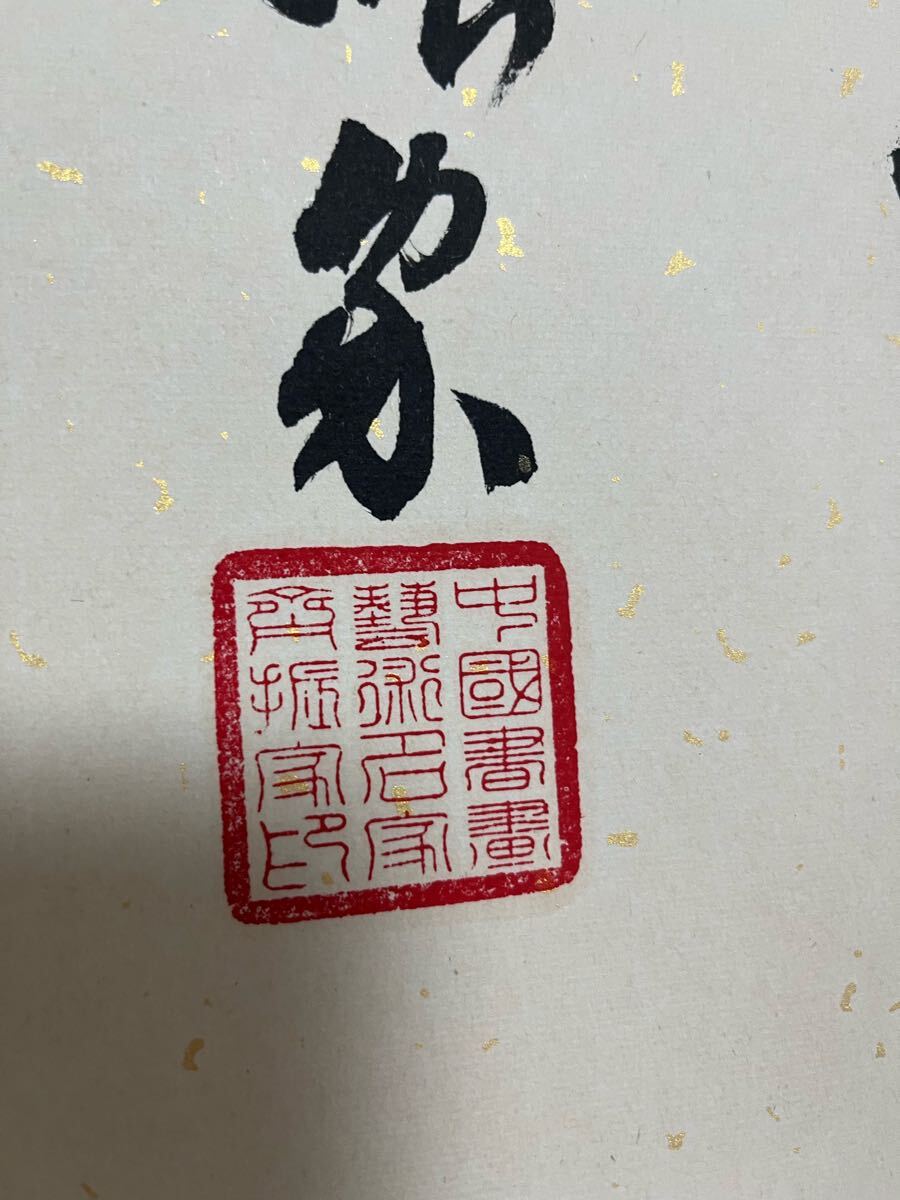 家
中國書畫
藝術名家
齊振家印